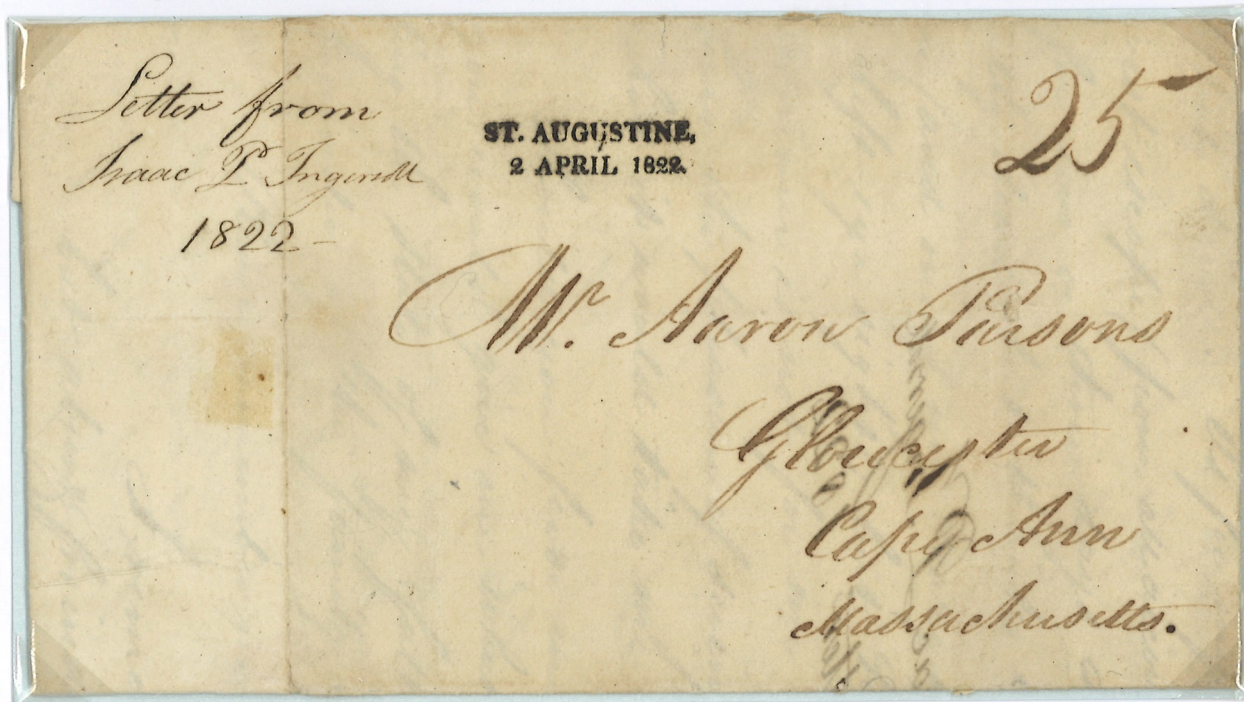 Letter from
Isaac P
1822
ST. AUGUSTINE,
2 APRIL 1822.
25
Mr. Aaron Parsons
Gloucester
Cape Ann
Massachusetts.